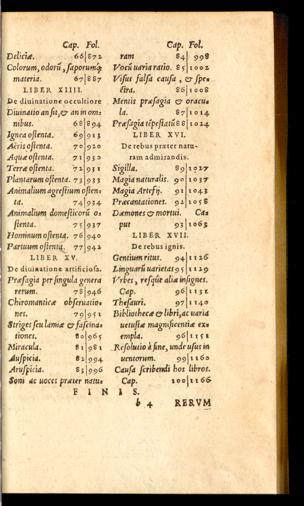 Cap. Fol.
Deliciæ. 66|872
Colorum, odorũ, saporumq;
materia. 67|887
LIBER XIIII.
De diuinatione occultiore
Diuinatio an sit, & an in om-
nibus. 68|894
Ignea ostenta. 69|913
Aëris ostenta. 70|920
Aquæ ostenta. 71|930
Terræ ostenta. 72|931
Plantarum ostenta. 73|933
Animalium agrestium osten-
ta. 74|934
Animalium domesticorũ o-
stenta. 75|937
Hominum ostenta. 76|940
Partuum ostenta. 77|942
LIBER XV.
De diuinatione artificiosa.
Præsagia per singula genera
rerum. 78|946
Chiromanticæ obseruatio-
nes. 79|951
Striges seu lamiæ & fascina-
tiones. 80|965
Miracula. 81|981
Auspicia. 82|994
Aruspicia. 83|996
Soni ac uoces præter natu-
Cap. Fol.
ram 84|998
Vocũ uaria ratio. 85|1002
Visus falsa causa, & spe-
ctra. 86|1008
Mentis præsagia & oracu-
la. 87|1014
Præsagia tẽpestatũ 88|1024
LIBER XVI.
De rebus præter natu-
ram admirandis.
Sigilla. 89|1027
Magia naturalis. 90|1037
Magia Artefij. 91|1043
Præcantationes. 92|1058
Dæmones & mortui. Ca-
put 93|1063
LIBER XVII.
De rebus ignis.
Gentium ritus. 94|1126
Linguarũ uarietas 95|1129
Vrbes, resq́ue aliæ insignes.
Cap. 96|1132
Thesauri. 97|1140
Bibliothecæ & libri, ac uaria
uetustæ magnificentiæ ex-
empla. 96|1151
Resolutio à fine, unde usus in
uentorum. 99|1160
Causa scribendi hos libros.
Cap. 100|1166
FINIS.
b 4 RERVM